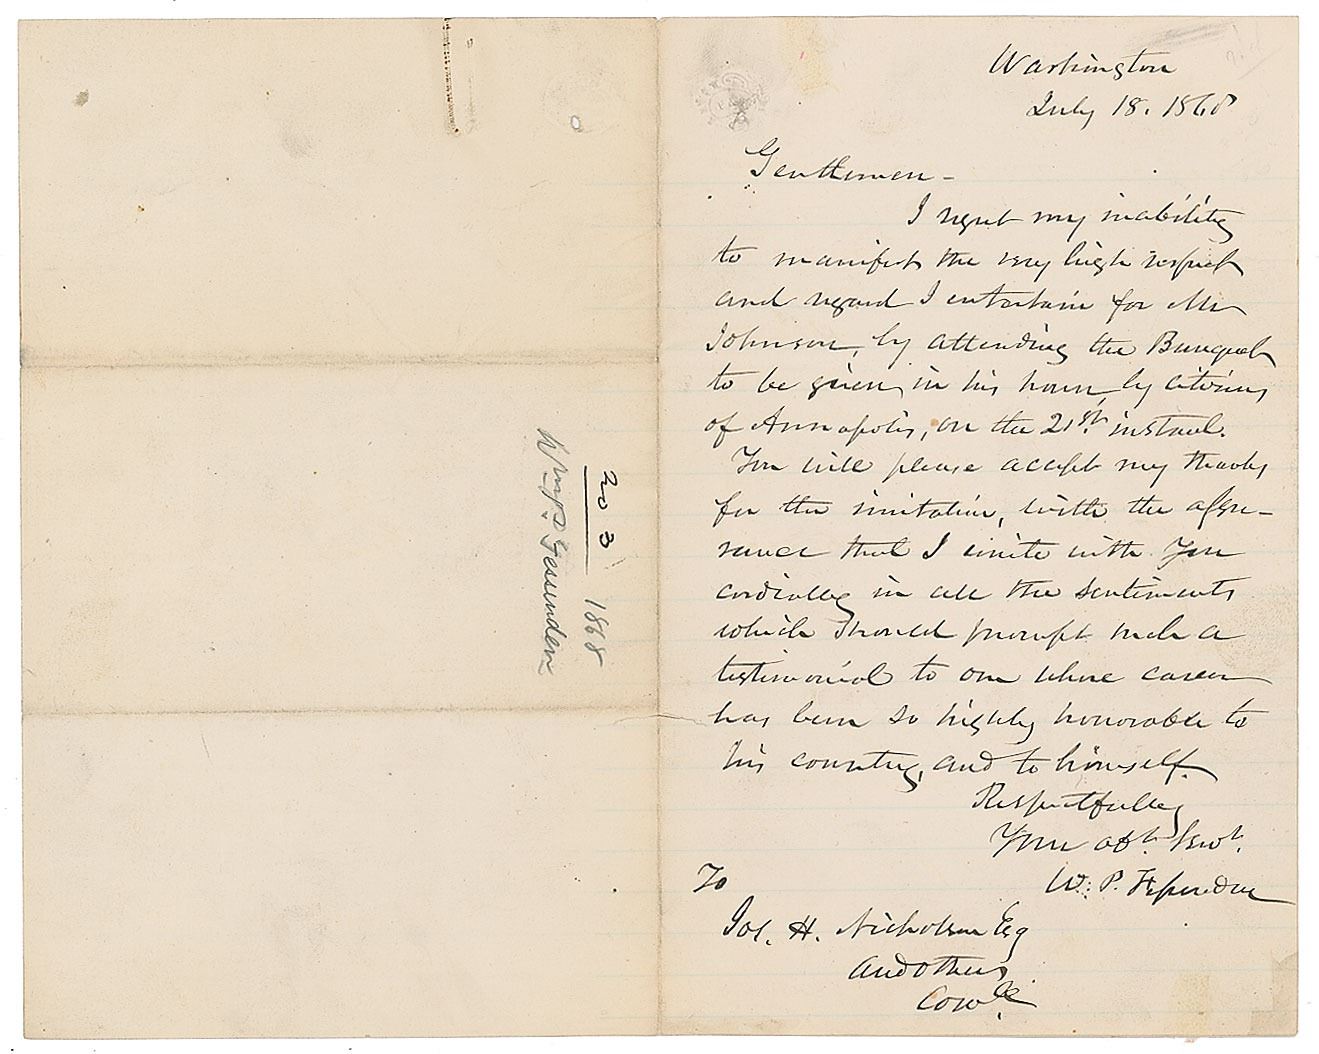 Washington
July 18. 1868
Gentlemen -
I regret my inability
to manifest the very high respect
and regard I entertain for Mr
Johnson, by attending the Banquet
to be given, in his honor, by citizens
of Annapolis, on the 21st. instant.
You will please accept my thanks
for the invitation, with the assu-
rance that I unite with you
cordially in all the sentiments
which should prompt such a
testimonial to one whose career
has been so highly honorable to
his country, and to himself.
Respectfully
Your obt. Servt.
W. P. Fessenden
To
Jos. H. Nicholson Esq
and others
Comtee.
203
1868
Wm P. Fessenden